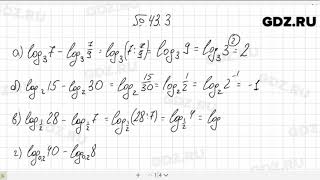 GDZ.RU
№43.3
а) log₃7 - log₃7/9 = log₃(7:7/9) = log₃9 = log₃3² = 2
б) log₂15 - log₂30 = log₂15/30 = log₂1/2 = log₂2⁻¹ = -1
в) log₁/₂28 - log₁/₂7 = log₁/₂(28:7) = log₁/₂4 = log
г) log₀,₂40 - log₀,₂8
GDZ.RU